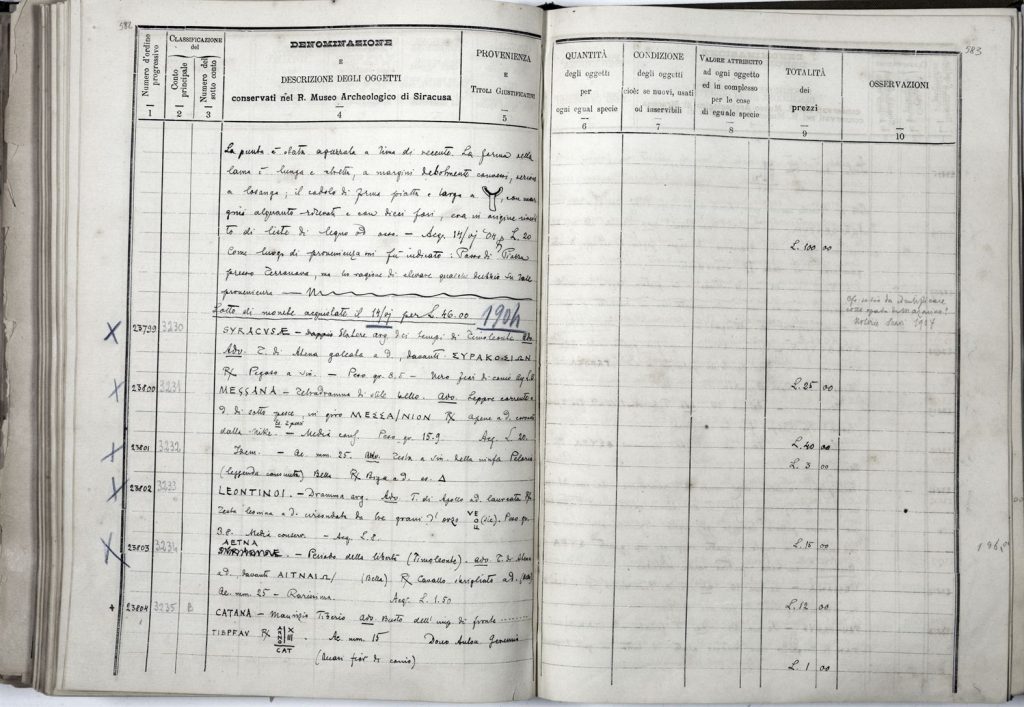 582
Numero d'ordine progressivo
1
CLASSIFICAZIONE del
Conto principale
2
Numero del sotto conto
3
DENOMINAZIONE
E
DESCRIZIONE DEGLI OGGETTI
conservati nel R. Museo Archeologico di Siracusa
4
PROVENIENZA
E
TITOLI GIUSTIFICATIVI
5
La punta è stata aguzzata a lima di recente. La forma della
lama è lunga e stretta, a margini debolmente convessi,
a losanga; il codolo di forma piatta e larga a Y, con mar
gini alquanto rilevati e con dieci fori, era in origine
to di liste di legno od osso. — Acq. 14/vj '04 p. L. 20
Come luogo di provenienza mi fu indicato: Passo di Piazza
presso Terranova, ma ho ragione di elevare qualche dubbio su tale
provenienza —
Lotto di monete acquistate il 14/vj per L. 46.00 1904
23799 3230 SYRACVSÆ — Statere arg. dei tempi di Timoleonte. Adv.
Adv. T. di Atena galeata a d., davanti ΣΥΡΑΚΟΣΙΩΝ
R/ Pegaso a sin. — Peso gr. 8.5 — Vero fior di conio Acq. L.
23800 3231 MESSANA — Tetradramma di stile bello. Adv. Leppre corrente a
d. di sotto pesce, in giro MESSA/NION R/ a d. coronato
dalla Nike. — Media conf. Peso gr. 15.9 Acq. L. 20.
23801 3232 Idem. — Ae. mm. 25. Adv. Testa a sin. della ninfa Peloria
(leggenda consunta) Bello R/ Biga a d. es. Δ
23802 3233 LEONTINOI. — Dramma arg. Adv. T. di Apollo a d. laureata R/
Testa leonina a d. circondata da tre grani d'orzo (sic). Peso gr.
3.8. Media conserv. — Acq. L. 8.
AETNA
23803 3234 SYRACVSÆ. — Periodo della libertà (Timoleonte). Adv. T. di
a d. davanti ΑΙΤΝΑΙΩ/ (Bella) R/ Cavallo sbrigliato a d.
Ae. mm. 25 — Rarissima. Acq. L. 1.50
+ 23804 3235 B CATANA — Maurizio Tiberio Adv. Busto dell'imp. di fronte
TIBPFAV R/ ANNO XIII CAT — Ae. mm. 15 Dono
(Quasi fior di conio)
583
QUANTITÀ
degli oggetti
per
ogni egual specie
6
CONDIZIONE
degli oggetti
cioè: se nuovi, usati
od inservibili
7
VALORE ATTRIBUITO
ad ogni oggetto
ed in complesso
per le cose
di eguale specie
8
TOTALITÀ
dei
prezzi
9
OSSERVAZIONI
10
L. 100 00
1907
L. 25 00
L. 40 00
L. 3 00
L. 15 00
L. 12 00
L. 1 00